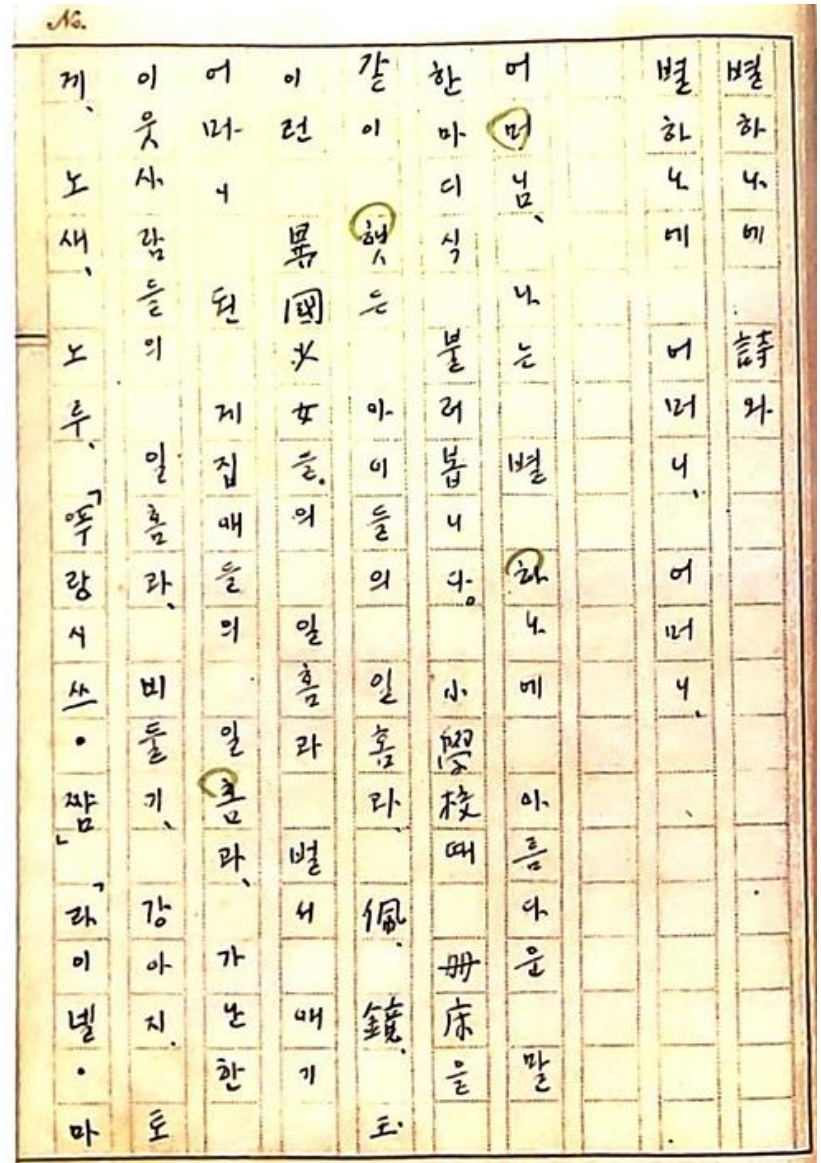 No.
별하나에 詩와
별하나에 어머니, 어머니,
어머님, 나는 별 하나에 아름다운 말
한마디식 불러봅니다。 小學校때 册床을
같이 햇든 아이들의 일홈과, 佩、鏡、玉
이런 異國少女들의 일홈과 벌서 애기
어머니 된 게집애들의 일홈과, 가난한
이웃사람들의 일홈과, 비둘기, 강아지, 토
끼, 노새, 노루, 「푸랑시쓰·짬」「라이넬·마